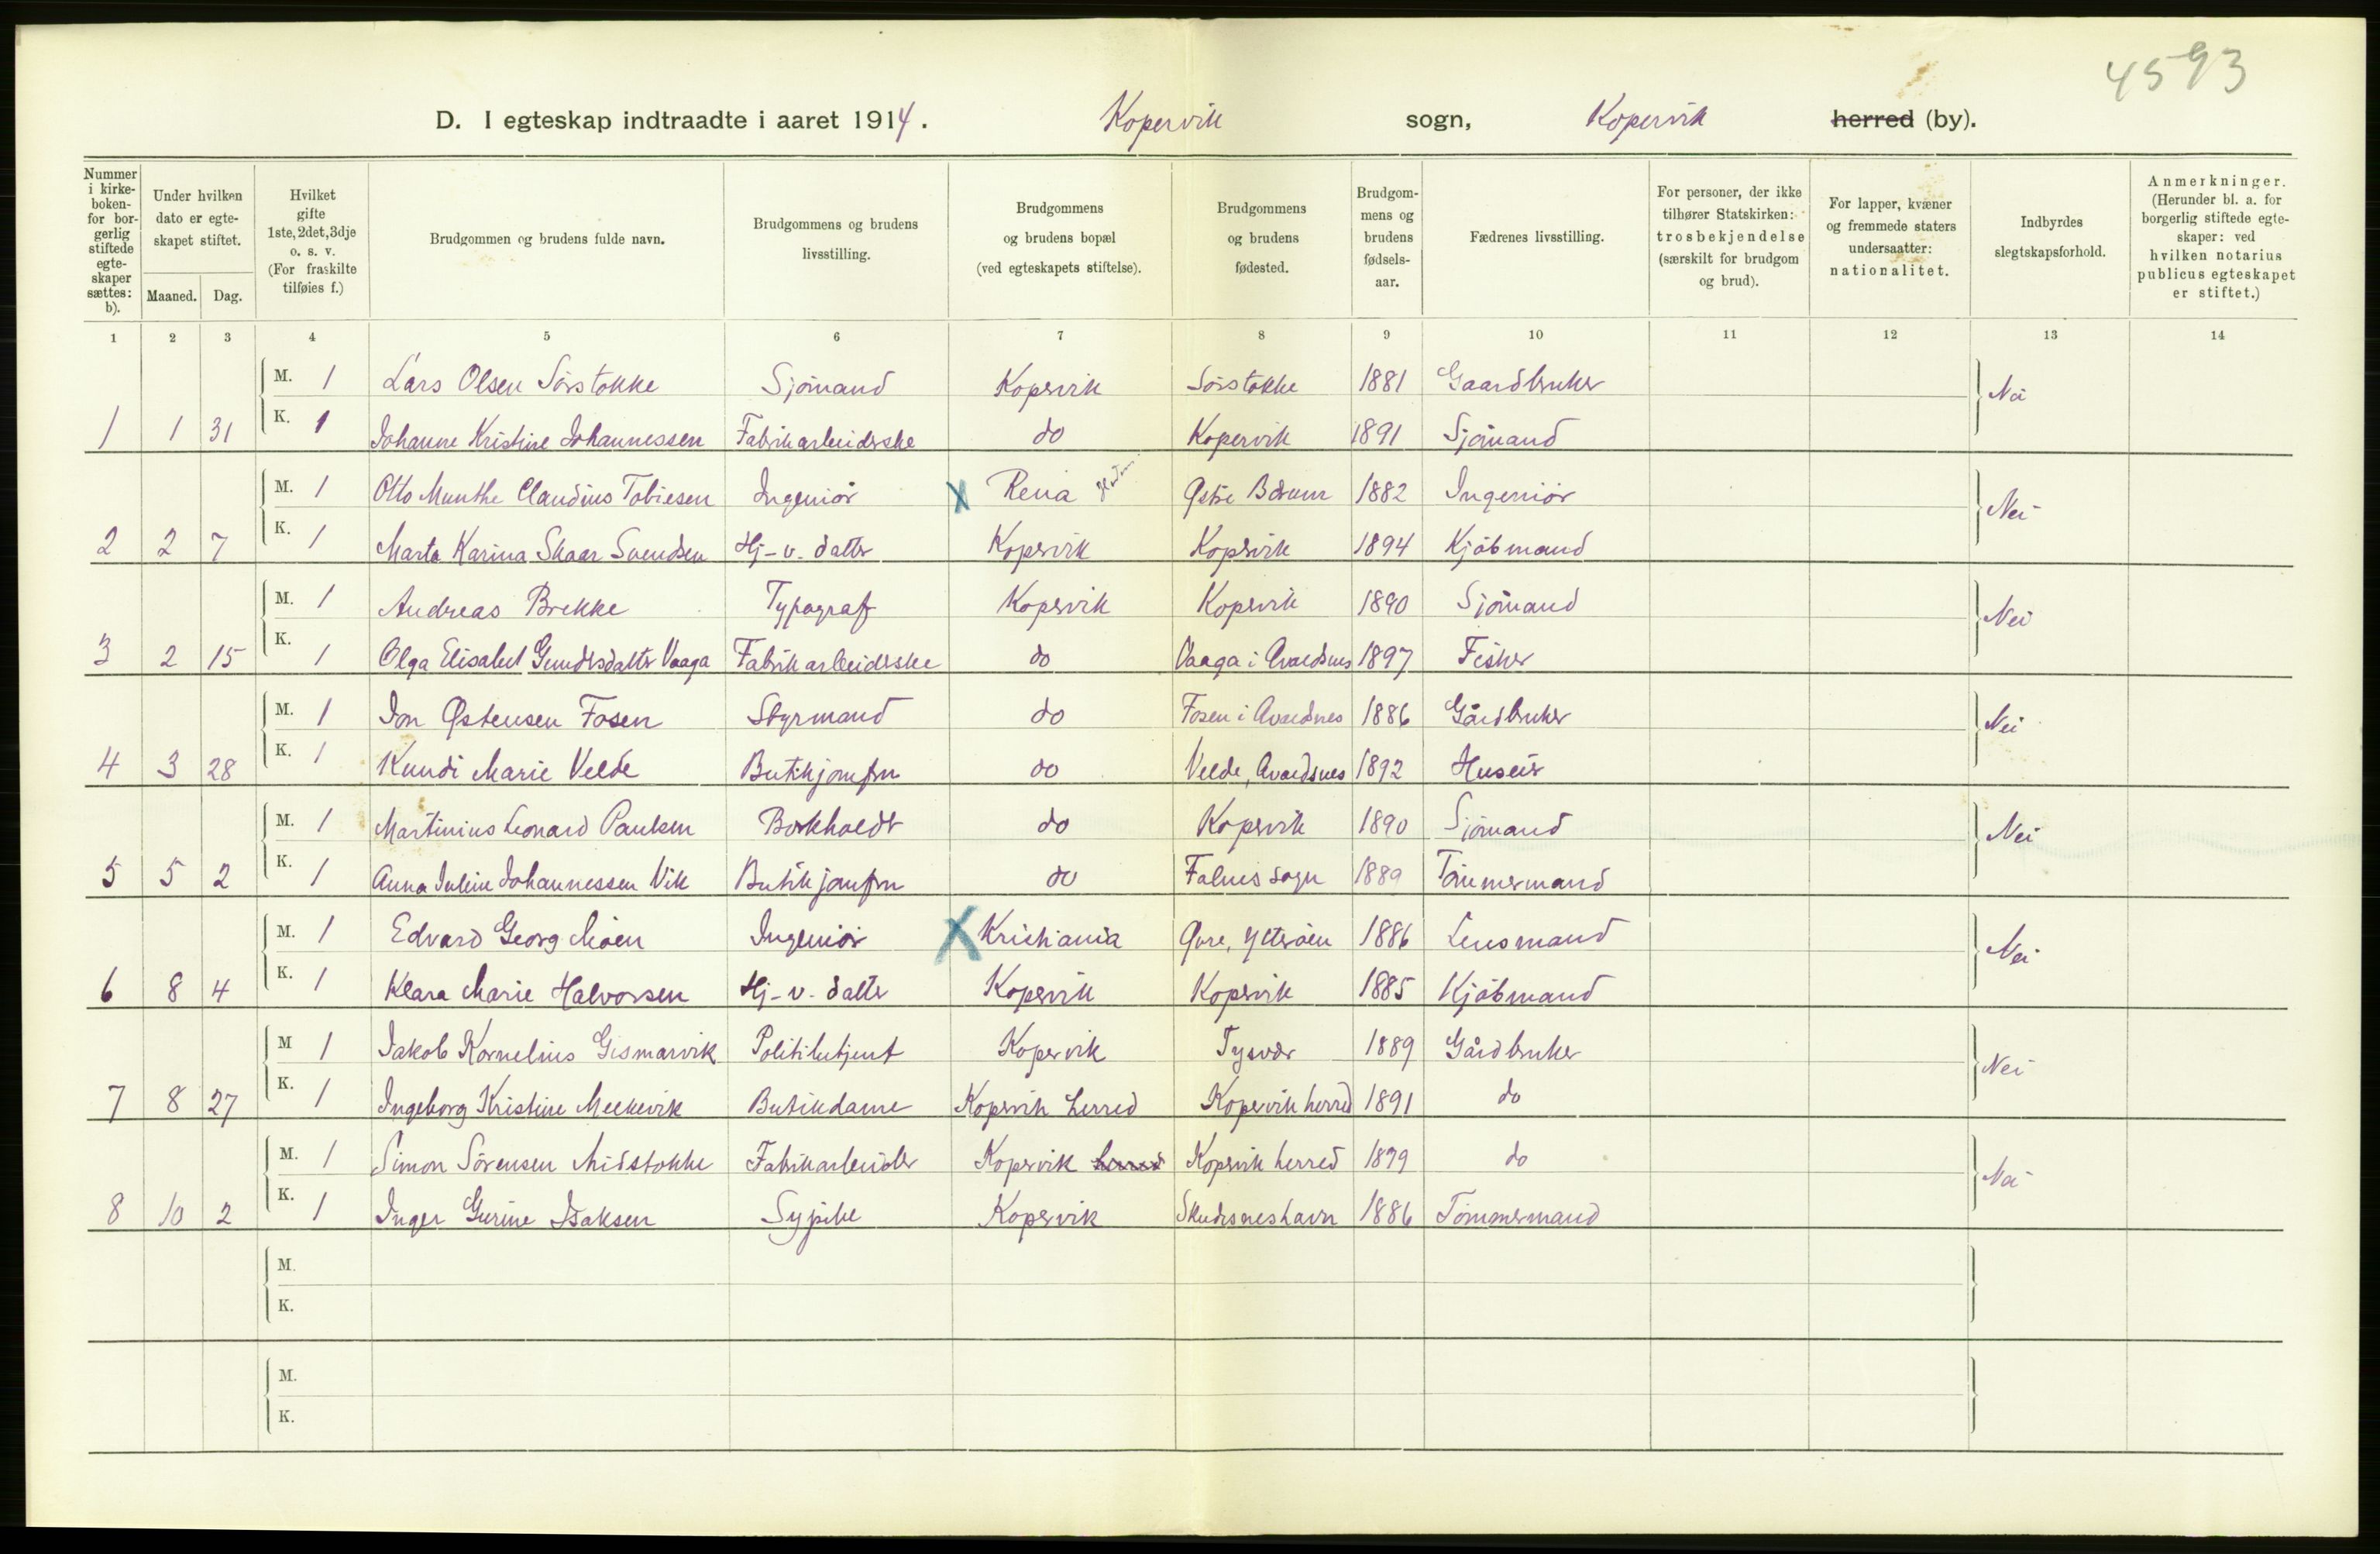 4593
D. I egteskap indtraadte i aaret 1914. Kopervik sogn, Kopervik herred (by).
Nummer i kirke-boken- for bor-gerlig stiftede egte-skaper sættes: b). Under hvilken dato er egte-skapet stiftet. Maaned. Dag. Hvilket gifte 1ste, 2det, 3dje o. s. v. (For fraskilte tilføies f.) Brudgommen og brudens fulde navn. Brudgommens og brudens livsstilling. Brudgommens og brudens bopæl (ved egteskapets stiftelse). Brudgommens og brudens fødested. Brudgom-mens og brudens fødsels-aar. Fædrenes livsstilling. For personer, der ikke tilhører Statskirken: trosbekjendelse (særskilt for brudgom og brud). For lapper, kvæner og fremmede staters undersaatter: nationalitet. Indbyrdes slegtskapsforhold. Anmerkninger. (Herunder bl. a. for borgerlig stiftede egte-skaper: ved hvilken notarius publicus egteskapet er stiftet.)
1 2 3 4 5 6 7 8 9 10 11 12 13 14
M. 1 Lars Olsen Sörstokke Sjömand Kopervik Sörstokke 1881 Gaardbruker Nei
1 1 31 K. 1 Johanne Kristine Johannessen Fabrikarbeiderske do Kopervik 1891 Sjömand
M. 1 Otto Munthe Claudius Tobiesen Ingeniör x Rena Østre Bærum 1882 Ingeniör Nei
2 2 7 K. 1 Marta Karina Skaar Svendsen Hj-v. datter Kopervik Kopervik 1894 Kjöbmand
M. 1 Andreas Brekke Typograf Kopervik Kopervik 1890 Sjömand Nei
3 2 15 K. 1 Olga Elisabet Gundersdatter Vaaga Fabrikarbeiderske do Vaaga i Avaldsnes 1897 Fisker
M. 1 Jon Østensen Fosen Styrmand do Fosen i Avaldnes 1886 Gårdbruker Nei
4 3 28 K. 1 Kundi Marie Velde Butikjomfru do Velde, Avaldsnes 1892 Huseier
M. 1 Martinius Leonard Paulsen Bokholder do Kopervik 1890 Sjömand Nei
5 5 2 K. 1 Anna Juline Johannessen Vik Butikjomfru do Falnes sogn 1889 Tömmermand
M. 1 Edvard Georg Moen Ingeniör X Kristiania Ytteröen 1886 Lensmand Nei
6 8 4 K. 1 Klara Marie Halvorsen Hj-v. datter Kopervik Kopervik 1885 Kjöbmand
M 1 Jakob Kornelius Gismarvik Politibetjent Kopervik Tysvær 1889 Gårdbruker Nei
7 8 27 K. 1 Ingeborg Kristine Mekkevik Butikdame Kopervik herred Kopervik herred 1891 do
M. 1 Simon Sörensen Midstokke Fabrikarbeider Kopervik herred Kopervik herred 1879 do Nei
8 10 2 K. 1 Inger Gurine Isaksen Sypike Kopervik Skudesneshavn 1886 Tömmermand
M.
K.
M.
K.